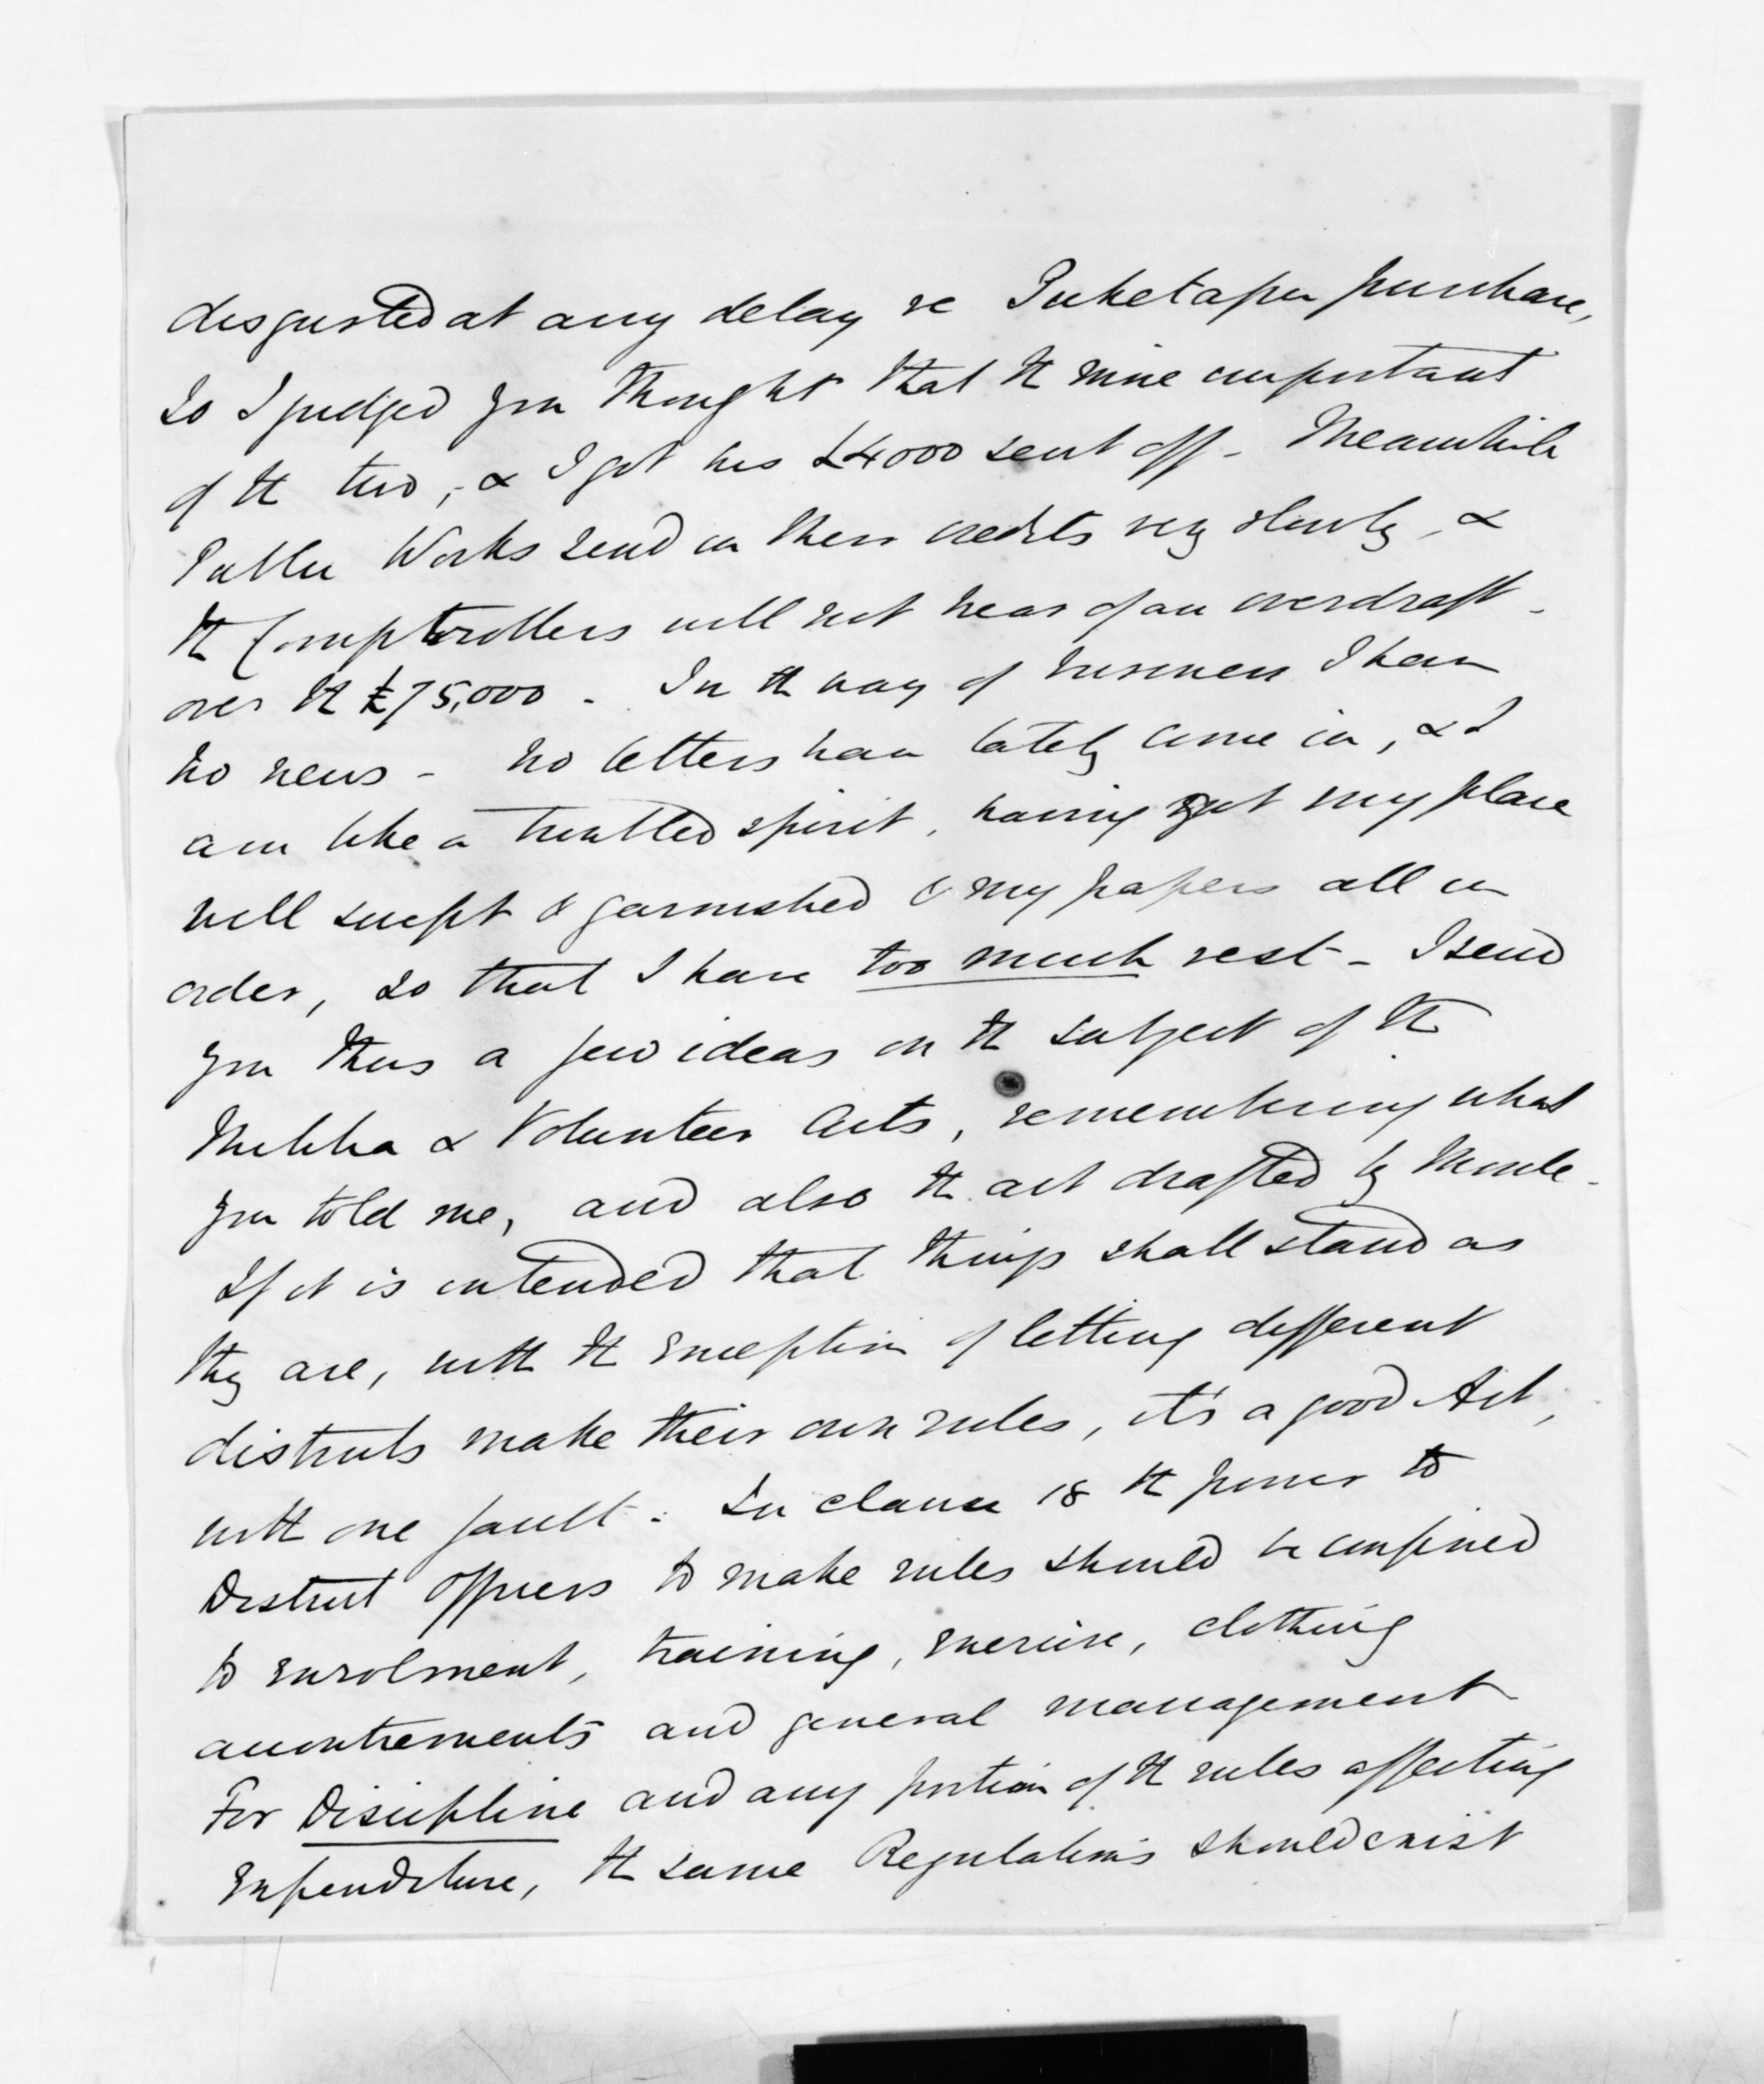 disgusted at any delay re Puketapu purchase,
so I judged you thought that the more important
of the two, & I got his £4000 sent off - Meanwhile
Public Works send in their credits very slowly, &
the Comptrollers will not hear of an overdraft -
over the £75,000 - In the way of business I have
no news - no letters have lately come in, & I
am like a troubled spirit, having got my place
well swept & garnished & my papers all in
order, so that I have too much rest - I send
you thus a few ideas on the subject of the
Militia & Volunteer Acts, remembering what
you told me, and also the act drafted by Moule -
If it is intended that things shall stand as
they are, with the exception of letting different
districts make their own rules, it's a good Act,
with one fault: In clause 18 the power to
District Officers to make rules should be confined
to enrolment, training, exercise, clothing
accoutrements and general management
For Discipline and any portion of the rules affecting
Expenditure, the same Regulations should exist